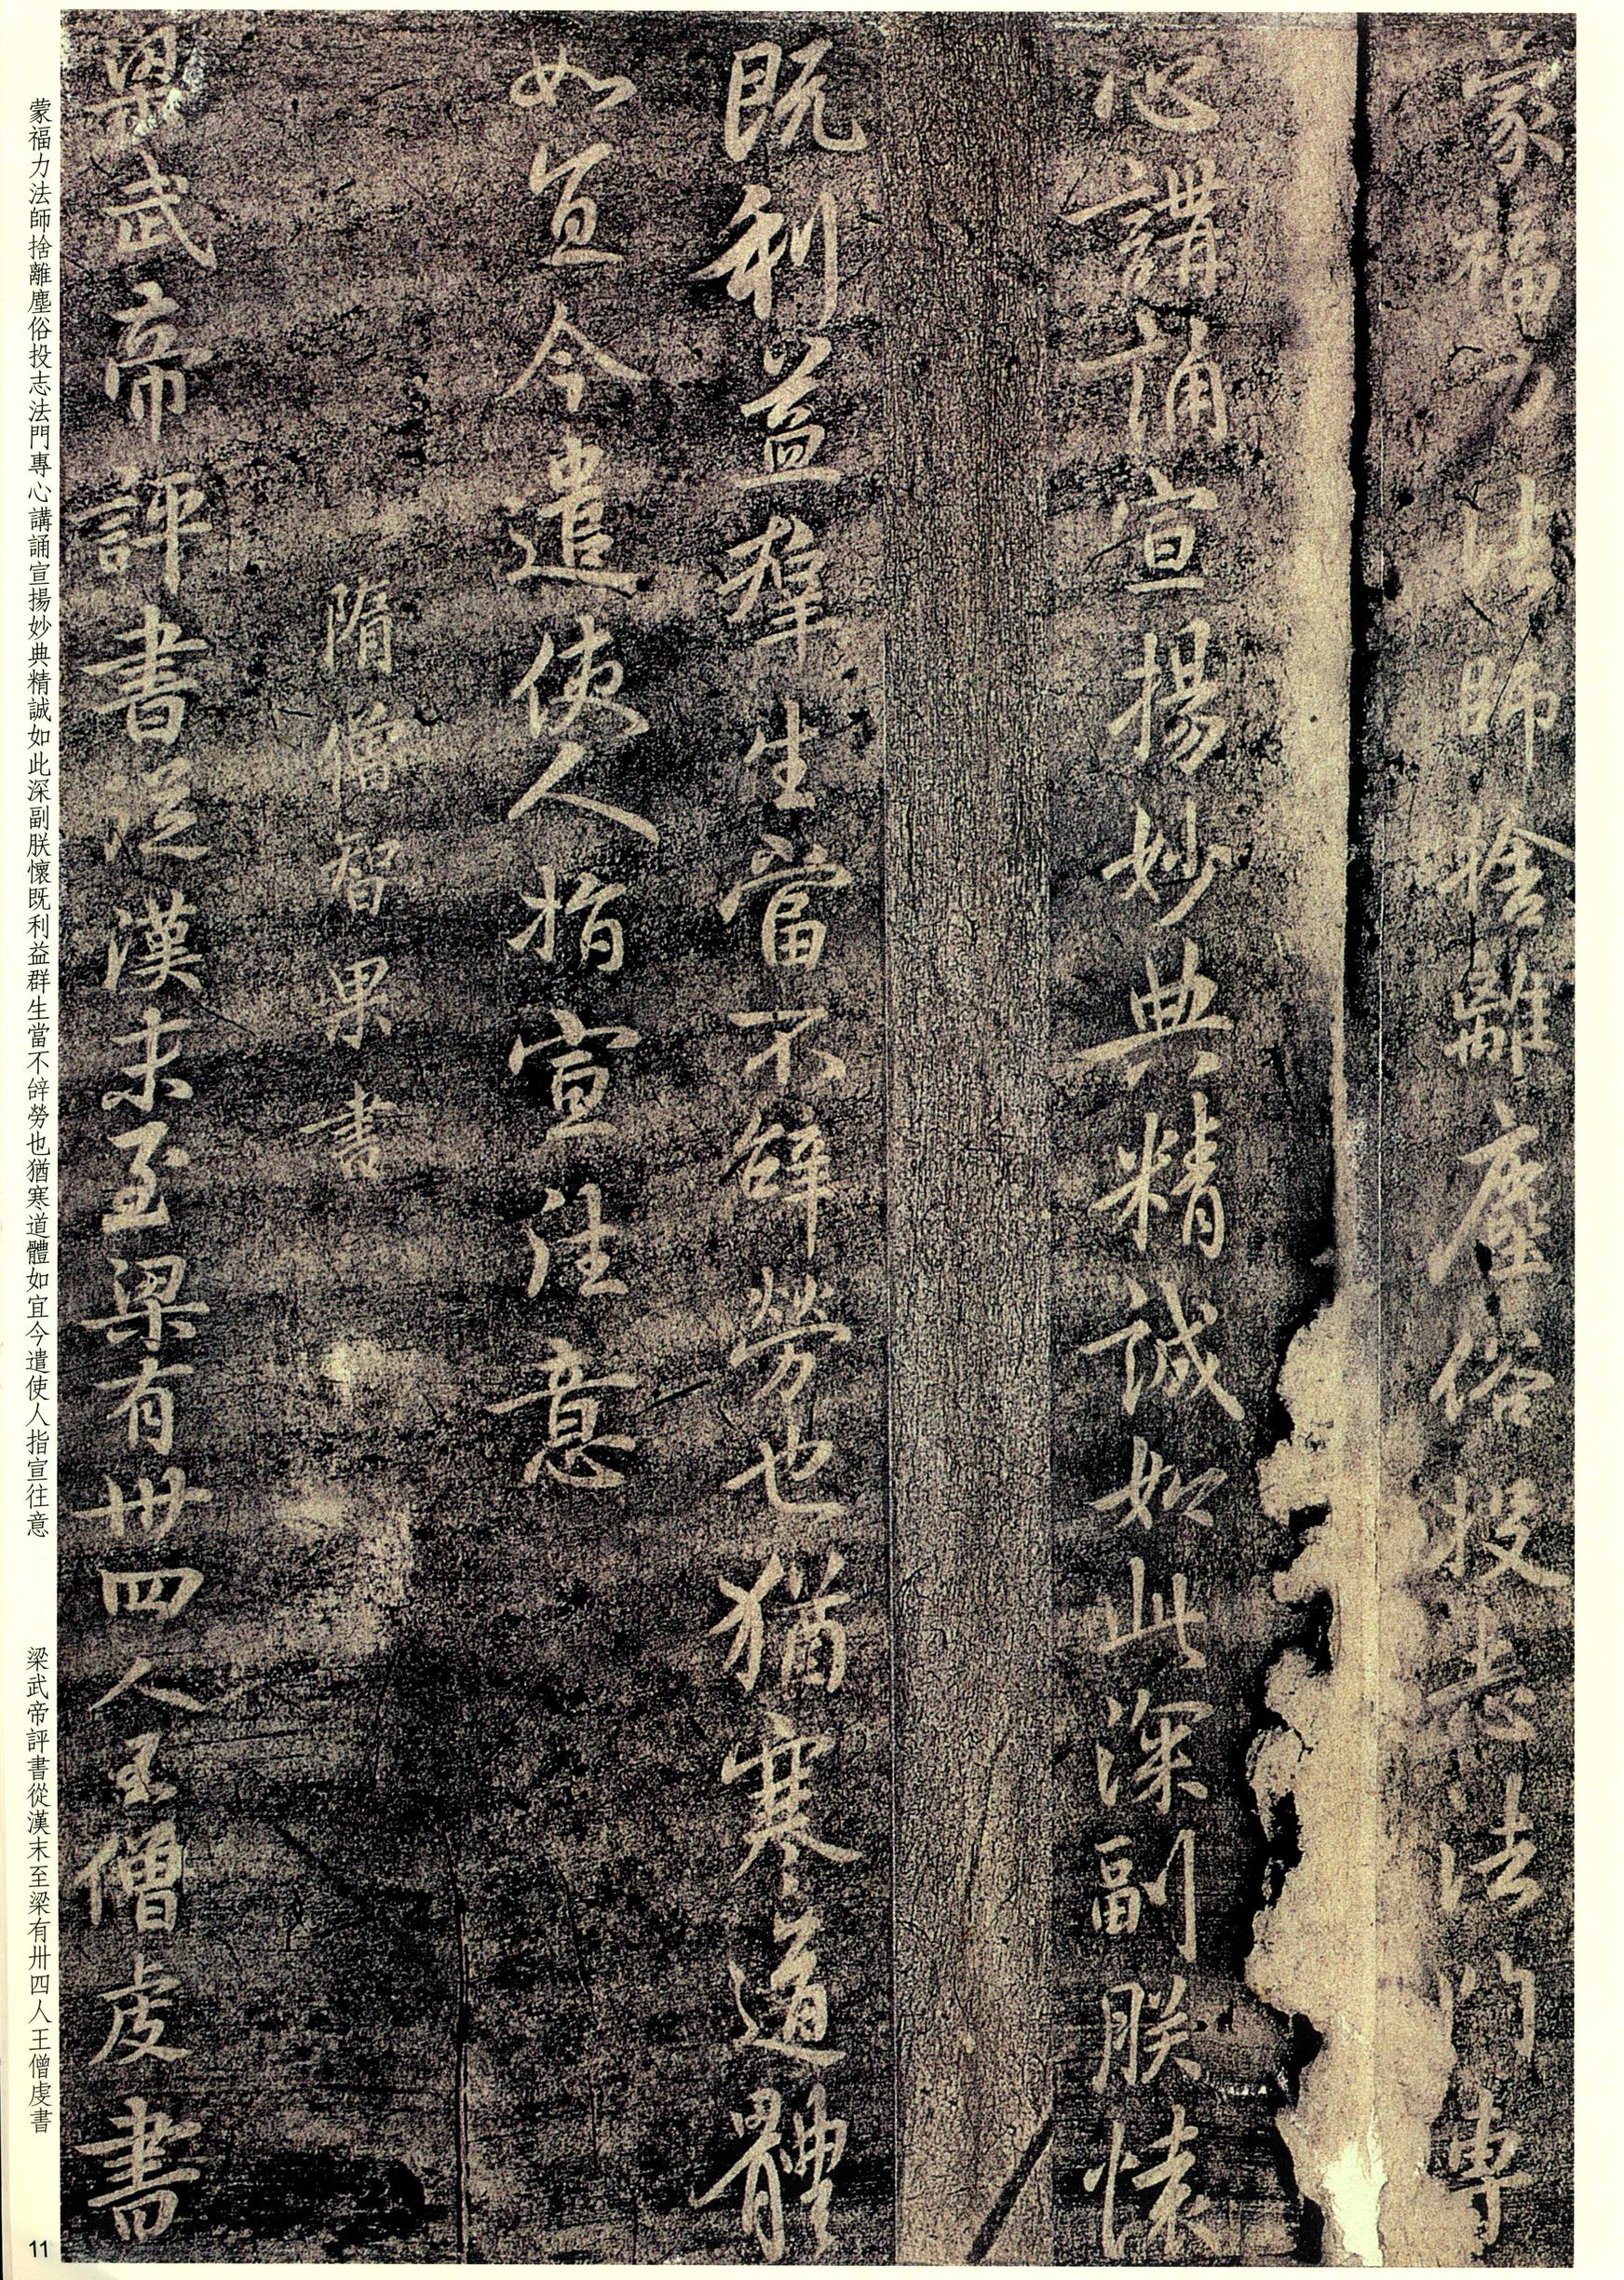 蒙福力法師捨離塵俗投志法門專
心講誦宣揚妙典精誠如此深副朕懷
既利益群生當不辝勞也猶寒道體
如宜今遣使人指宣往意
隋僧智果書
梁武帝評書從漢末至梁有卅四人王僧虔書
蒙福力法師捨離塵俗投志法門專心講誦宣揚妙典精誠如此深副朕懷既利益群生當不辝勞也猶寒道體如宜今遣使人指宣往意
梁武帝評書從漢末至梁有卅四人王僧虔書
11